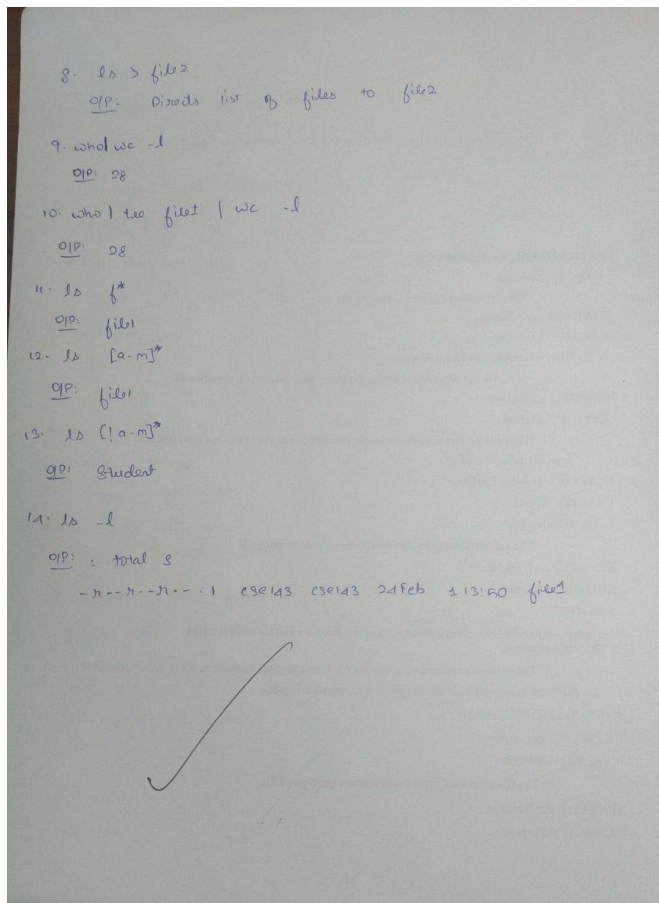 8. ls > file2
O/P: Directs list of files to file2
9. who|wc -l
O/P: 28
10. who | tee file1 | wc -l
O/P: 28
11. ls f*
O/P: file1
12. ls [a-m]*
O/P: file1
13. ls [!a-m]*
O/P: Student
14. ls -l
O/P: : total 8
-r--r--r--. 1 cse143 cse143 24 Feb 1 13:50 file1